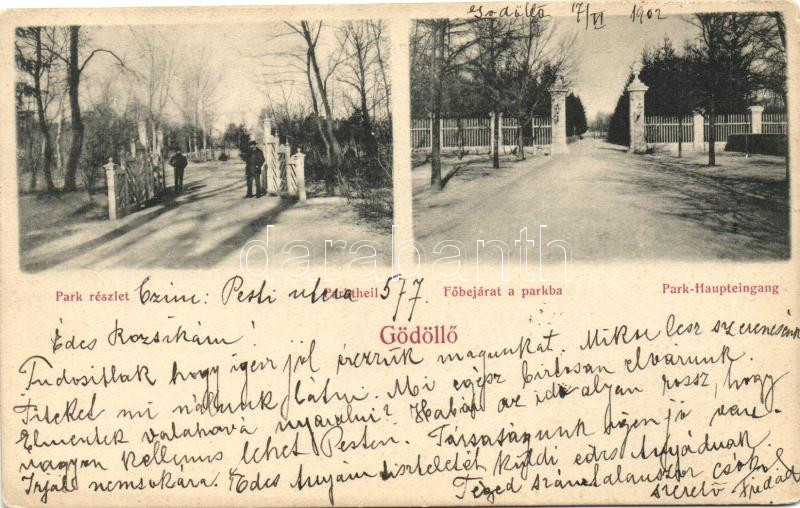 Gödöllő 7/VI 1902
Park részlet
Parktheil
Főbejárat a parkba
Park-Haupteingang
darabanth
Czim: Pesti utca 577.
Gödöllő
Édes Rozsikám!
Tudositlak hogy igen jól érezzük magunkat. Mikor lesz szerencsénk
Titeket mi nálunk látni. Mi egész biztosan elvárunk.
Elmentek valahová nyaralni? Habár az idő olyan rossz, hogy
nagyon kellemes lehet Pesten. Társaságunk igen jó van.
Irjál nemsokára. Édes Anyám tiszteletét küldi édes Anyádnak
Téged számtalanszor csókol
szerető